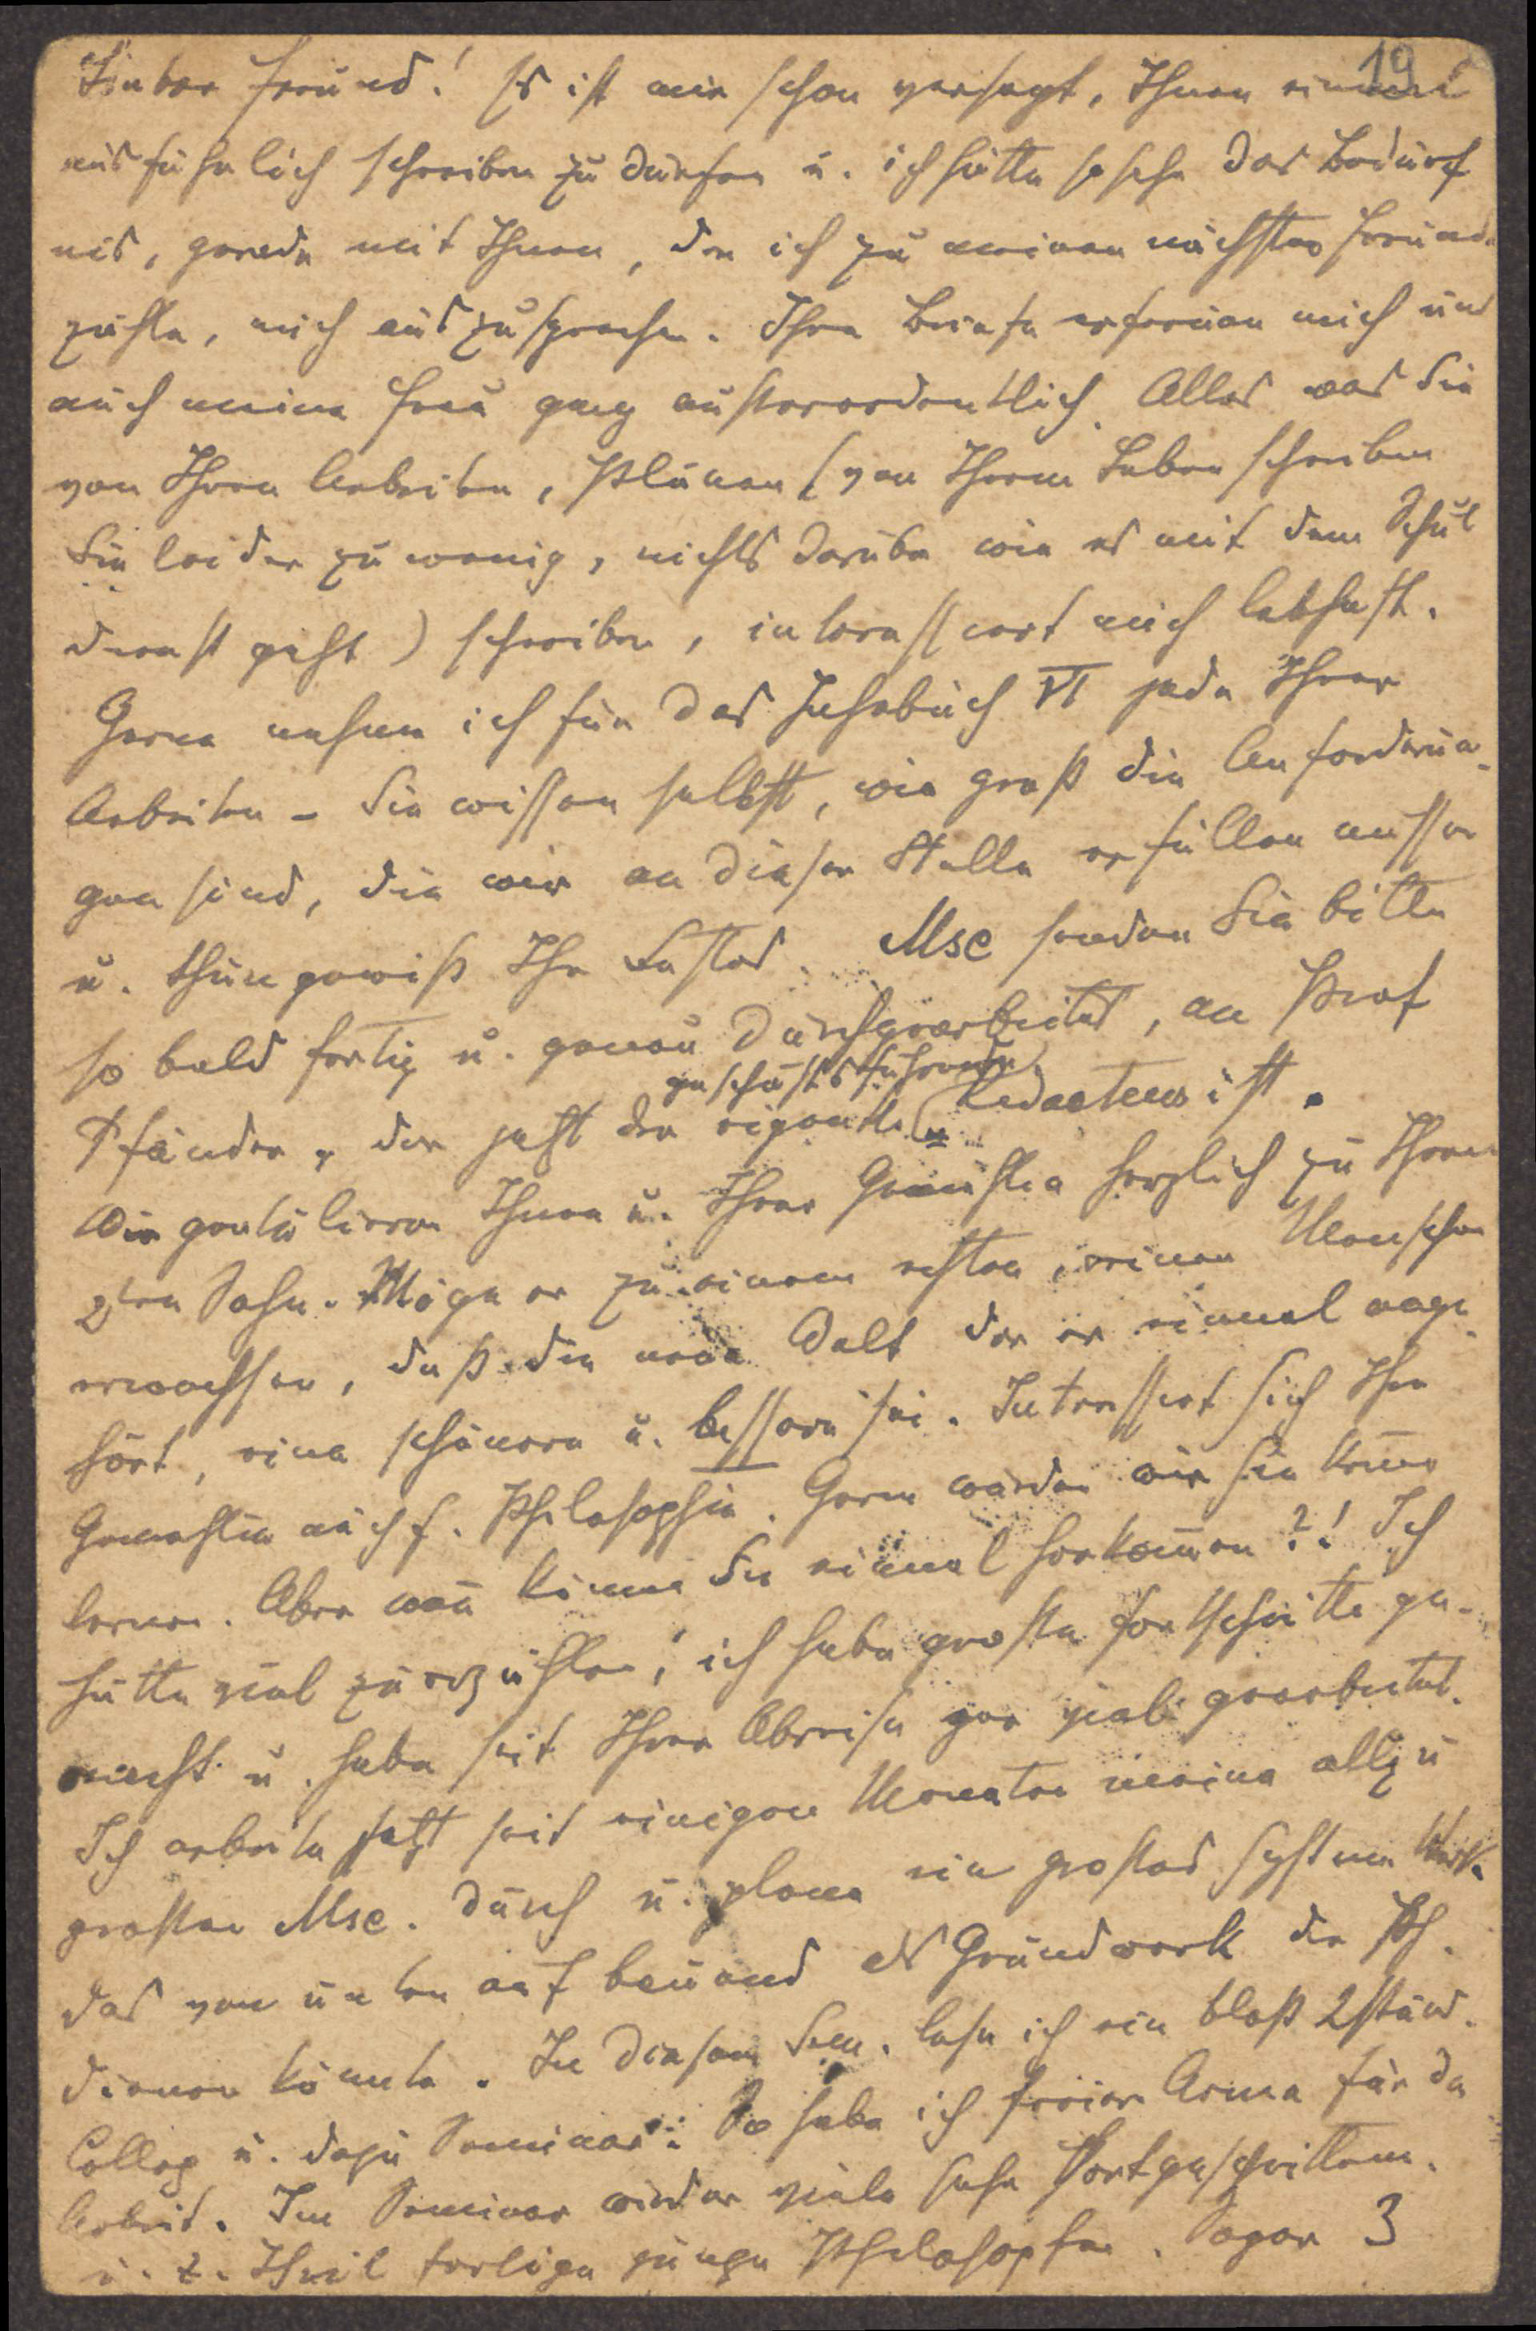 19
Lieber Freund! Es ist mir schon versagt, Ihnen einmal
ausführlich schreiben zu dürfen u. ich hätte so sehr das Bedürf
nis, gerade mit Ihnen, den ich zu meinen nächsten Freunde
zähle, mich auszusprechen. Ihre Briefe erfreuen mich und
auch meine Frau ganz außerordentlich. Alles was Sie
von Ihren Arbeiten, Plänen (von Ihrem Leben schreiben
Sie leider zu wenig, nichts darüber wie es mit dem Schul
dienst geht) schreiben, interessiert mich lebhaft.
Gerne nehme ich für das Jahrbuch VI jede Ihrer
Arbeiten – Sie wissen selbst, wie groß die Anforderun-
gen sind, die wir an dieser Stelle erfüllen müssen
u. thun gewiß Ihr Bestes. Msc senden Sie bitte
so bald fertig u. genau durchgearbeitet, an Prof
geschäftsführende
Pfänder, der jetzt der eigentl. Redacteur ist.
Wir gratulieren Ihnen u. Ihrer Gemahlin herzlich zu Ihrem
2ten Sohn. Möge er zu einem echten, reinen Menschen
erwachsen, daß die neue Welt der er einmal ange-
hört, eine schönere u. bessere sei. Interessiert sich Ihre
Gemahlin auch f. Philosophie. Gern würden wir sie kennen
lernen. Aber wann können Sie einmal herkommen?! Ich
hätte viel zu erzählen, ich habe große Fortschritte ge-
macht u. habe seit Ihrer Abreise gar viel gearbeitet.
Ich arbeite jetzt seit einigen Monaten meine allzu
großen Msc. durch u. plane ein großes system Werk
das von unten aufbauend als Grundwerk der Ph.
dienen könnte. In diesem Sem. lese ich ein bloß 2stünd.
Colleg u. dazu Seminar: So habe ich freiere Arme für die
Arbeit. Im Seminar wieder viele sehr Fortgeschrittene.
u. z. Theil fertige junge Philosophen. Sogar 3